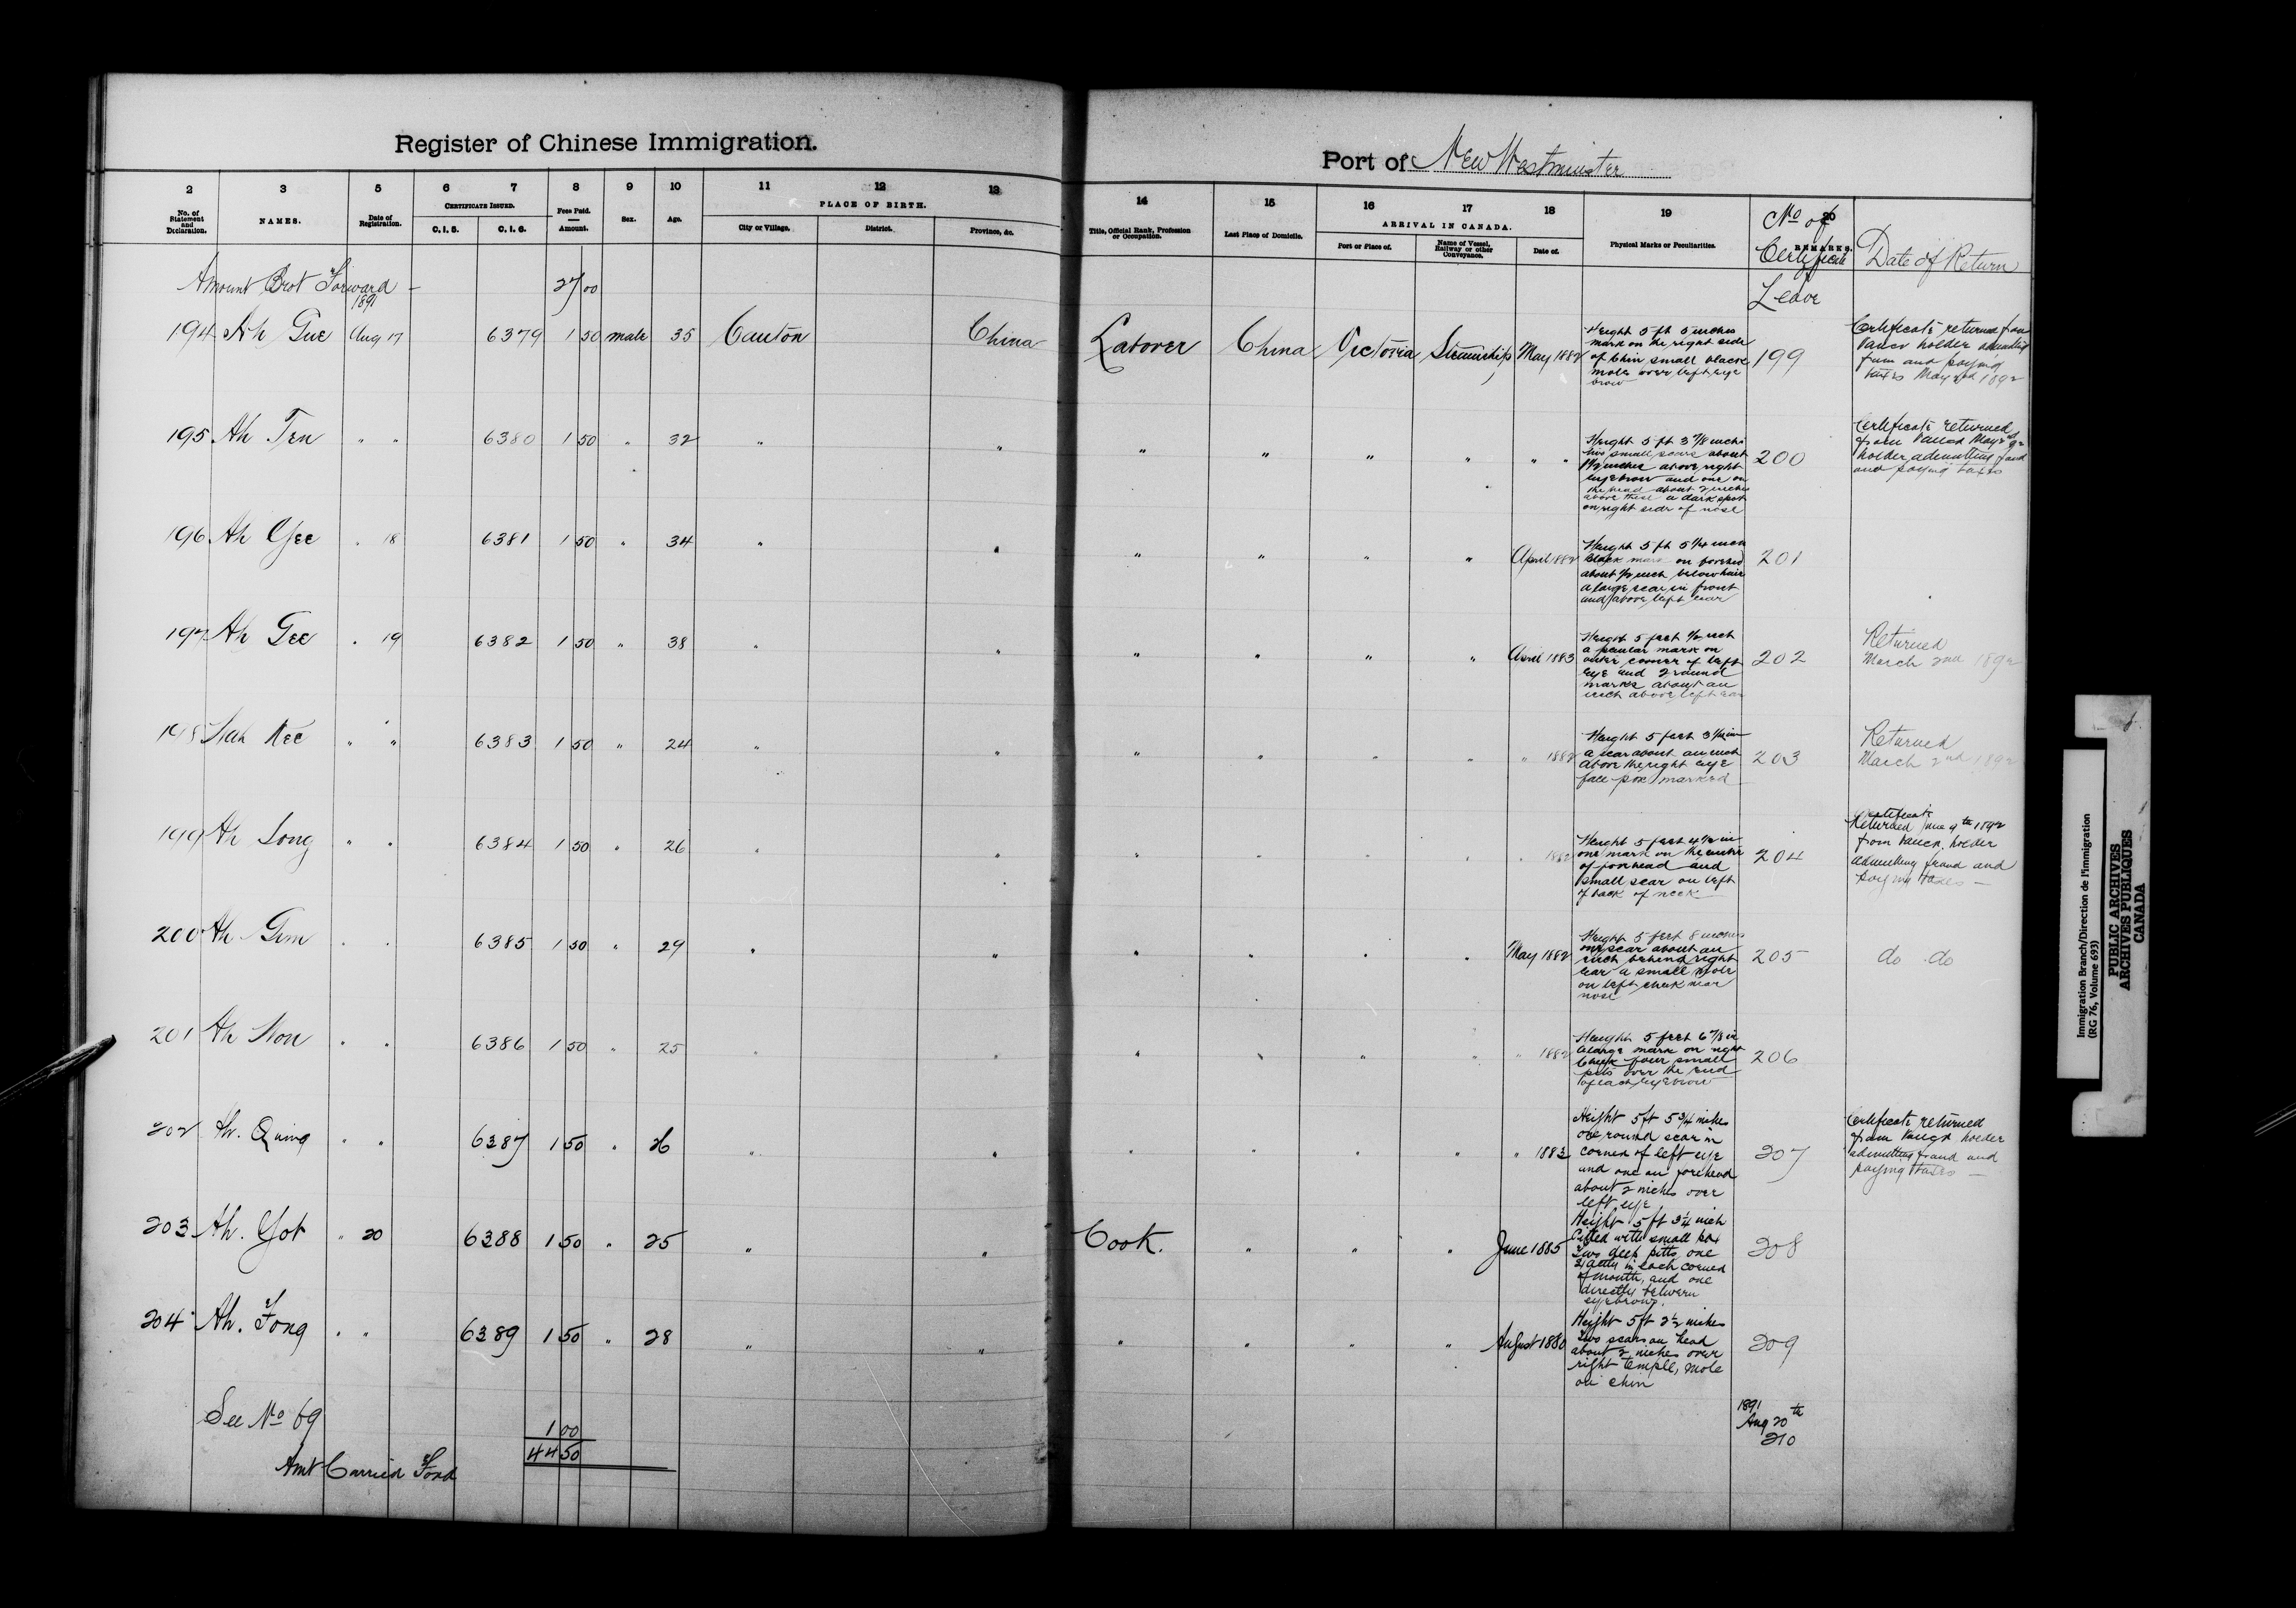 Register of Chinese Immigration.
Port of New Westminster
2 3 5 6 7 8 9 10 11 12 13 14 15 16 17 18 19 20
No. of Statement and Declaration. NAMES. Date of Registration. CERTIFICATE ISSUED. C. I. 5. C. I. 6. Fees Paid. Amount. Sex. Age. PLACE OF BIRTH. City or Village. District. Province, &c. Title, Official Rank, Profession or Occupation. Last Place of Domicile. ARRIVAL IN CANADA. Port or Place of. Name of Vessel, Railway or other Conveyance. Date of. Physical Marks or Peculiarities. REMARKS. No of Certificate Leave Date of Return
Amount Brot Forward - 27 00
1891
194 Ah Gue Aug 17 6379 1 50 male 35 Canton China Laborer China Victoria Steamship May 1882 199
Height 5 ft 5 inches
mark on the right side
of Chin small black
mole over left eye
brow
Certificate returned from
Vancr holder admitting
fraud and paying
taxes May 2nd 1892
195 Ah Ten " " 6380 1 50 " 32 " " " " " " " " 200
Height 5 ft 3 7/8 inch
two small scars about
1 1/2 inches above right
eyebrow and one on
the head about 2 inches
above these a dark spot
on right side of nose
Certificate returned
from Vancr May 2nd 92
holder admitting fraud
and paying taxes
196 Ah Yee " 18 6381 1 50 " 34 " " " " " " April 1882 201
Height 5 ft 5 1/4 inch
black mark on forehead
about 1/2 inch below hair
a large scar in front
and above left ear
197 Ah Gee " 19 6382 1 50 " 38 " " " " " " April 1883 202
Height 5 feet 1/2 inch
a peculiar mark on
outer corner of left
eye and 2 round
marks about an
inch above left ear
Returned
March 2nd 1892
198 Kee " " 6383 1 50 " 24 " " " " " " " 1882 203
Height 5 feet 3 in
a scar about an inch
above the right eye
face pox marked
Returned
March 2nd 1892
199 Ah Long " " 6384 1 50 " 26 " " " " " " " 1882 204
Height 5 feet 4 1/2 in
one mark on the centre
of forehead and
small scar on left
of back of neck
Certificate
Returned June 4th 1892
from Vancr. holder
admitting fraud and
paying taxes -
200 Ah Gim " " 6385 1 50 " 29 " " " " " " May 1882 205
Height 5 feet 8 inches
one scar about an
inch behind right
ear a small mole
on left cheek near
nose
do do
201 Ah Hon " " 6386 1 50 " 25 " " " " " " " 1882 206
Height 5 feet 6 7/8 in
a large mark on right
cheek four small
pits over the end
of each eyebrow
202 Ah. Quing " " 6387 1 50 " 26 " " " " " " " 1883 207
Height 5 ft 5 3/4 inches
one round scar in
corner of left eye
and one on forehead
about 2 inches over
left eye
Certificate returned
from Vancr holder
admitting fraud and
paying taxes -
203 Ah. Yot " 20 6388 1 50 " 25 " " Cook. " " " June 1885 208
Height 5 ft 3 1/4 inch
Pitted with small pox
Two deep pitts, one
in each corner
of mouth, and one
directly between
eyebrows.
204 Ah. Fong " " 6389 1 50 " 28 " " " " " " August 1880 209
Height 5 ft 2 1/2 inches
Two scars on head
about 2 inches over
right temple, mole
on chin
See No 69 1 00
1891
Aug 20th
210
Amt Carried Ford 44 50
Immigration Branch/Direction de l'immigration
(RG 76, Volume 693)
PUBLIC ARCHIVES
ARCHIVES PUBLIQUES
CANADA